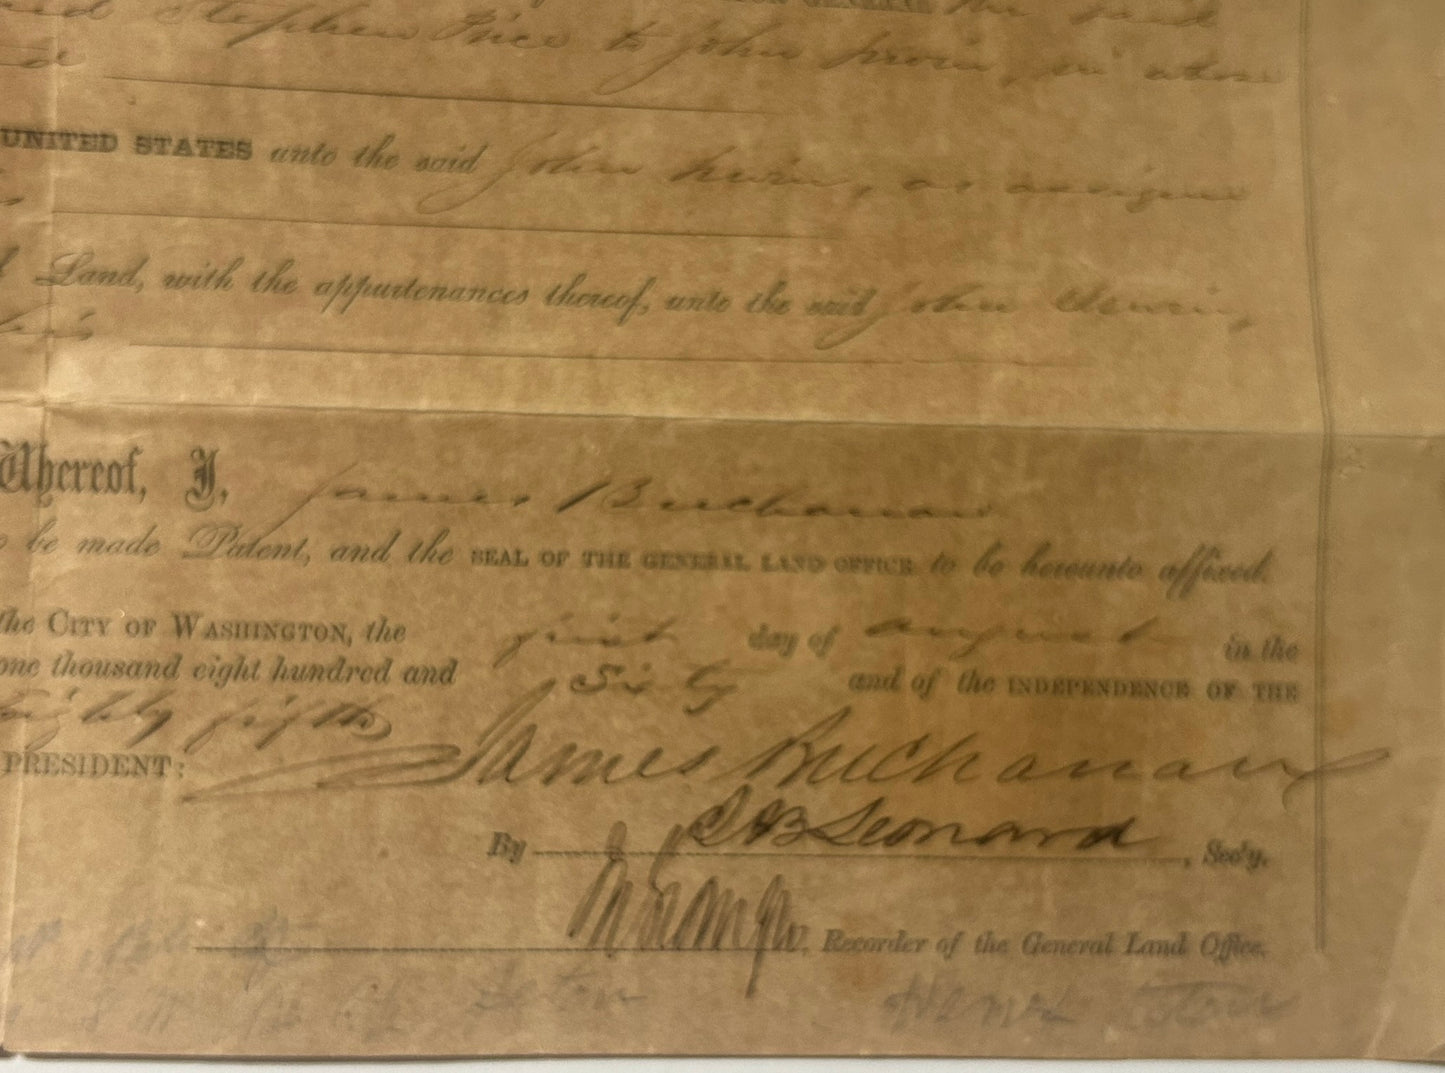 GENERAL the said
Stephen Price to John Irwin, in whose
UNITED STATES unto the said John Irwin, as assignee
Land, with the appurtenances thereof, unto the said John Irwin,
Whereof, I, James Buchanan
be made Patent, and the SEAL OF THE GENERAL LAND OFFICE to be hereunto affixed.
the CITY OF WASHINGTON, the first day of august in the
one thousand eight hundred and Sixty and of the INDEPENDENCE OF THE
Eighty fifth
PRESIDENT: James Buchanan
By Leonard, Sec'y.
Recorder of the General Land Office.